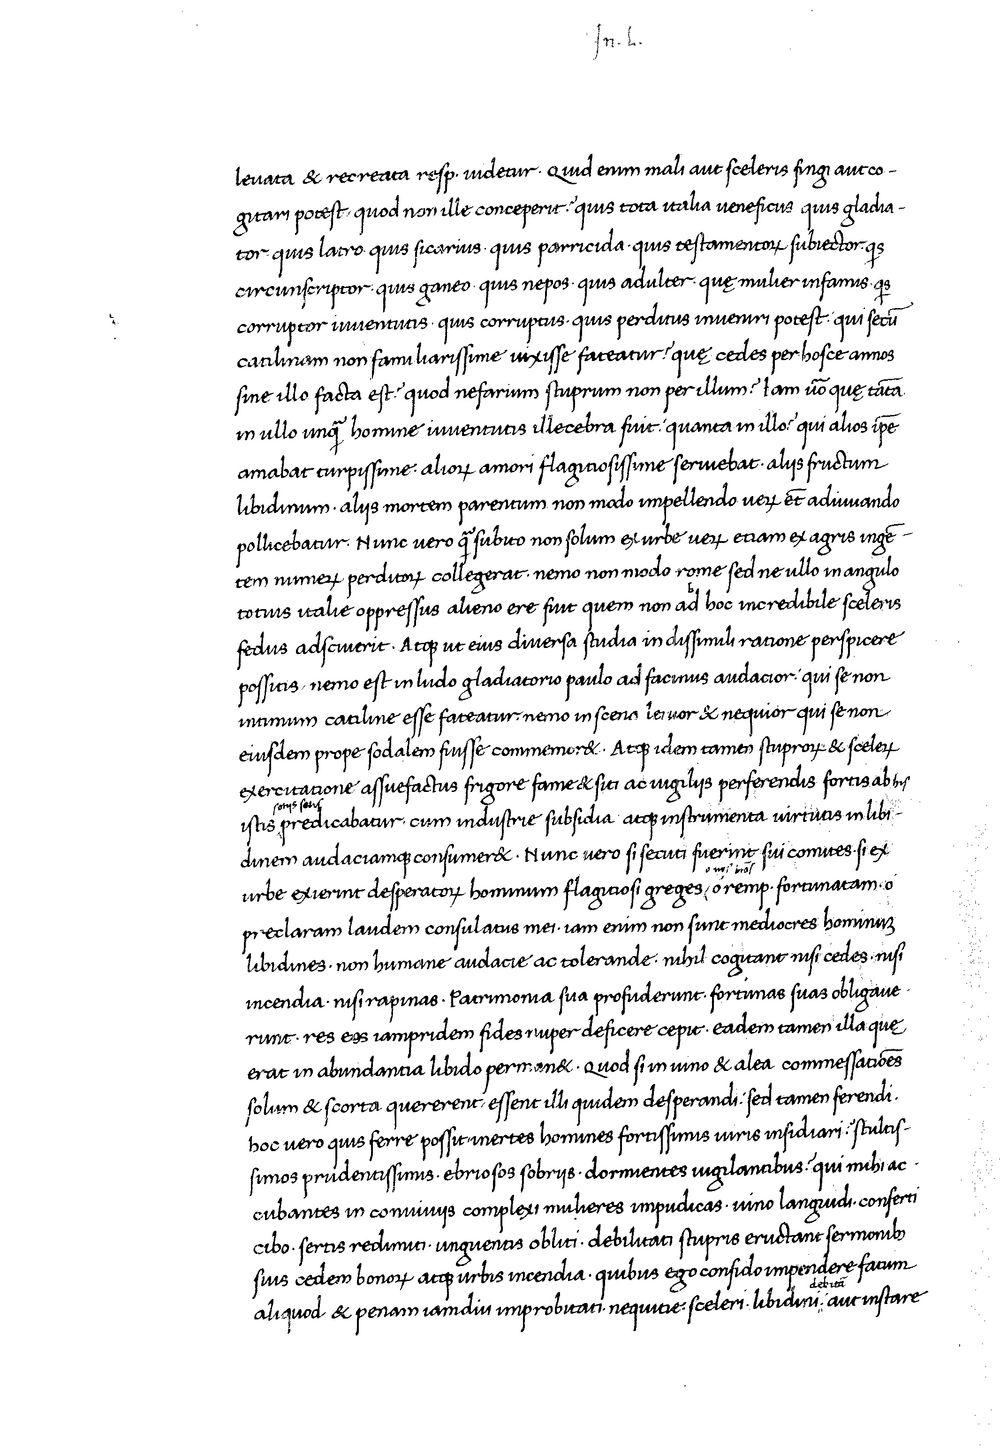 In. L.
leuata & recreata resp. uidetur. Quid enim mali aut sceleris fingi aut co-
gitari potest, quod non ille conceperit? quis tota italia ueneficus quis gladia-
tor. quis latro quis sicarius. quis parricida. quis testamentoꝝ subiector. qͥs
circunscriptor. quis ganeo. quis nepos. quis adulter. quę mulier infamis. qͥs
corruptor iuuentutis. quis corruptus. quis perditus inueniri potest: qui secū
catilinam non familiarissime uixisse fateatur? quę cedes per hosce annos
sine illo facta est? quod nefarium stuprum non per illum? Iam ūo quę tāta
in ullo unqͣ̄ homine iuuentutis illecebra fuit: quanta in illo? qui alios ip̄e
amabat turpissime: alioꝝ amori flagitiosissime seruiebat. aliis fructum
libidinum. aliis mortem parentum non modo impellendo ueꝝ et̄ adiuuando
pollicebatur. Nunc vero qͣ̄ subito non solum ex urbe ueꝝ etiam ex agris ingē-
tem numeꝝ perditoꝝ collegerat. nemo non modo rome sed ne ullo in angulo
totius italie oppressus alieno ere fuit quem non ad hoc incredibile sceleris
fedus adsciuerit. Atqꝫ ut eius diversa studia in dissimili ratione perspicere
possitis, nemo est in ludo gladiatorio paulo ad facinus audacior: qui se non
intimum catiline esse fateatur. nemo in scena leuior & nequior qui se non
eiusdem prope sodalem fuisse commemor&. Atqꝫ idem tamen stuproꝝ & sceleꝝ
exercitatione assuefactus frigore fame & siti ac uigiliis perferendis fortis ab his
istis predicabatur. cum industrie subsidia atqꝫ instrumenta uirtutis in libi-
dinem audaciamqꝫ consumer&. Nunc vero si secuti fuerint sui comites. si ex
urbe exierint desperatoꝝ hominum flagitiosi greges, o remp. fortunatam. o
preclaram laudem consulatus mei. iam enim non sunt mediocres hominuꝫ
libidines. non humane audacie ac tolerande. nihil cogitant nisi cedes. nisi
incendia. nisi rapinas. Patrimonia sua profuderunt. fortunas suas obligaue-
runt. res eos iampridem fides nuper deficere cepit. eadem tamen illa quę
erat in abundantia libido perman&. Quod si in uino & alea commessatiōes
solum & scorta quererent, essent illi quidem desperandi: sed tamen ferendi.
hoc vero quis ferre possit inertes homines fortissimis uiris insidiari? stultis-
simos prudentissimis. ebriosos sobriis. dormientes uigilantibus? qui mihi ac-
cubantes in conuiuiis complexi mulieres impudicas. uino languidi. conferti
cibo. sertis redimiti. unguentis obliti. debilitati stupris eructant sermonibꝫ
suis cedem bonoꝝ atqꝫ urbis incendia. quibus ego confido impendere fatum
debitā
aliquod & penam iamdiu improbitati. nequitie. sceleri. libidini: aut instare